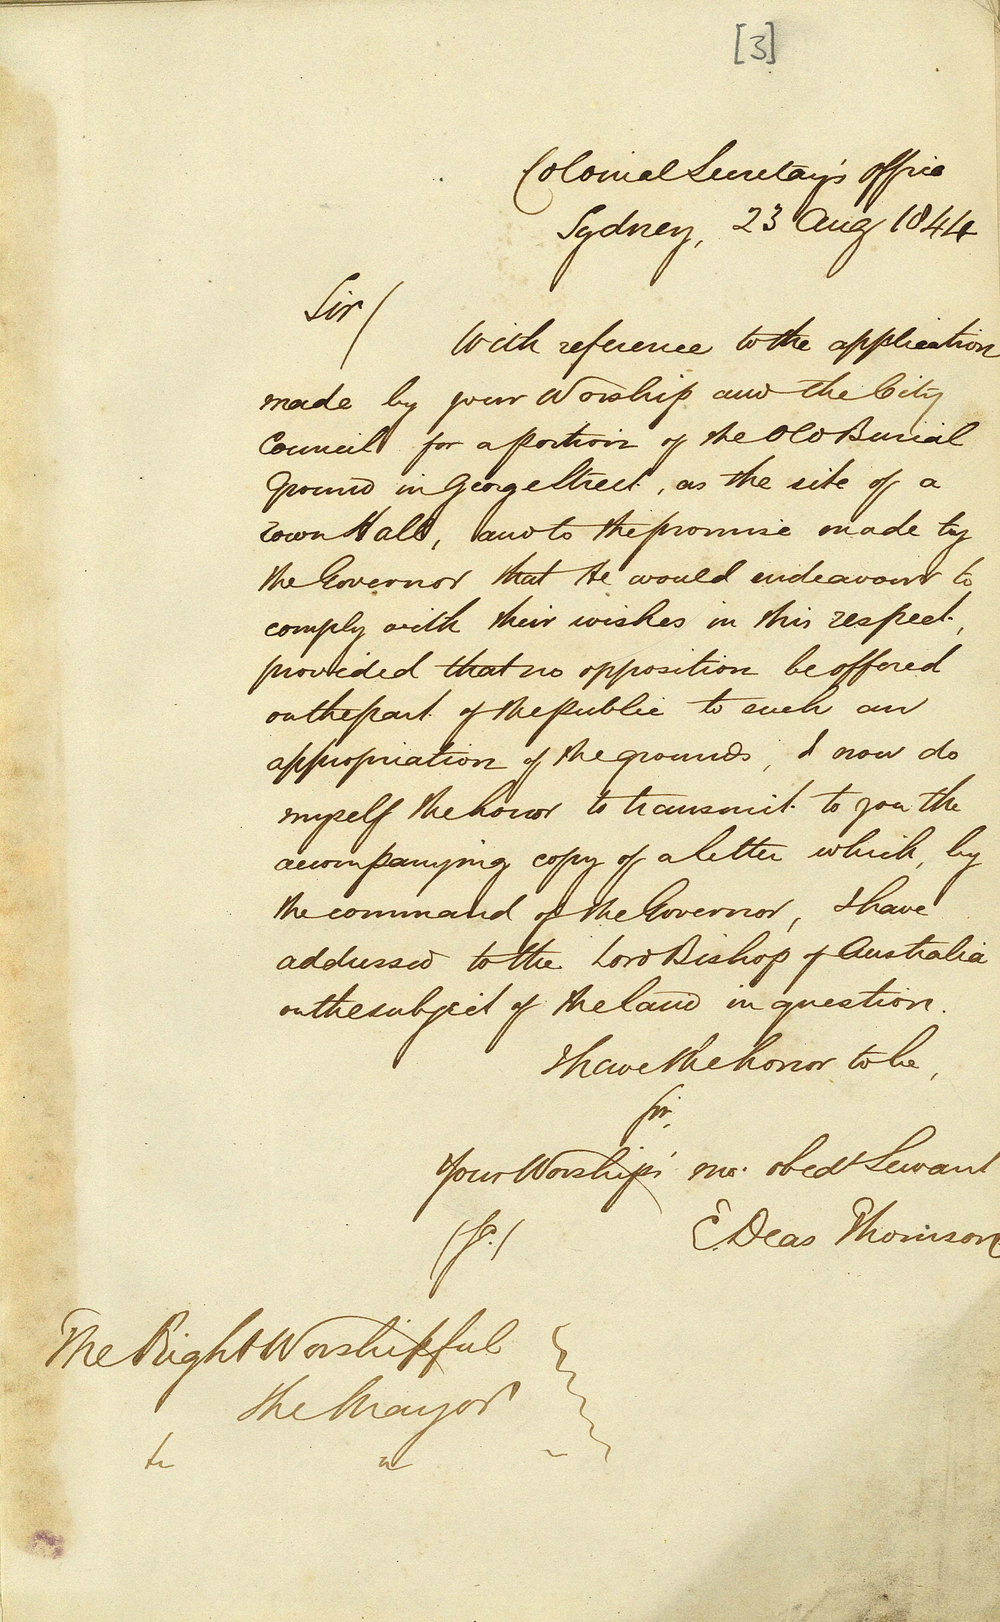 [3]
Colonial Secretary's Office
Sydney, 23 Aug 1844
Sir/
With reference to the application
made by your Worship and the City
Council for a portion of the Old Burial
Ground in George Street, as the site of a
Town Hall, and to the promise made by
the Governor that He would endeavour to
comply with their wishes in this respect,
provided that no opposition be offered
on the part of the public to such an
appropriation of the grounds, I now do
myself the honor to transmit to you the
accompanying copy of a letter which, by
the command of the Governor, I have
addressed to the Lord Bishop of Australia
on the subject of the land in question.
I have the honor to be,
Sir,
Your Worship's mo. obedt Servant
E. Deas Thomson
The Right Worshipful
the Mayor